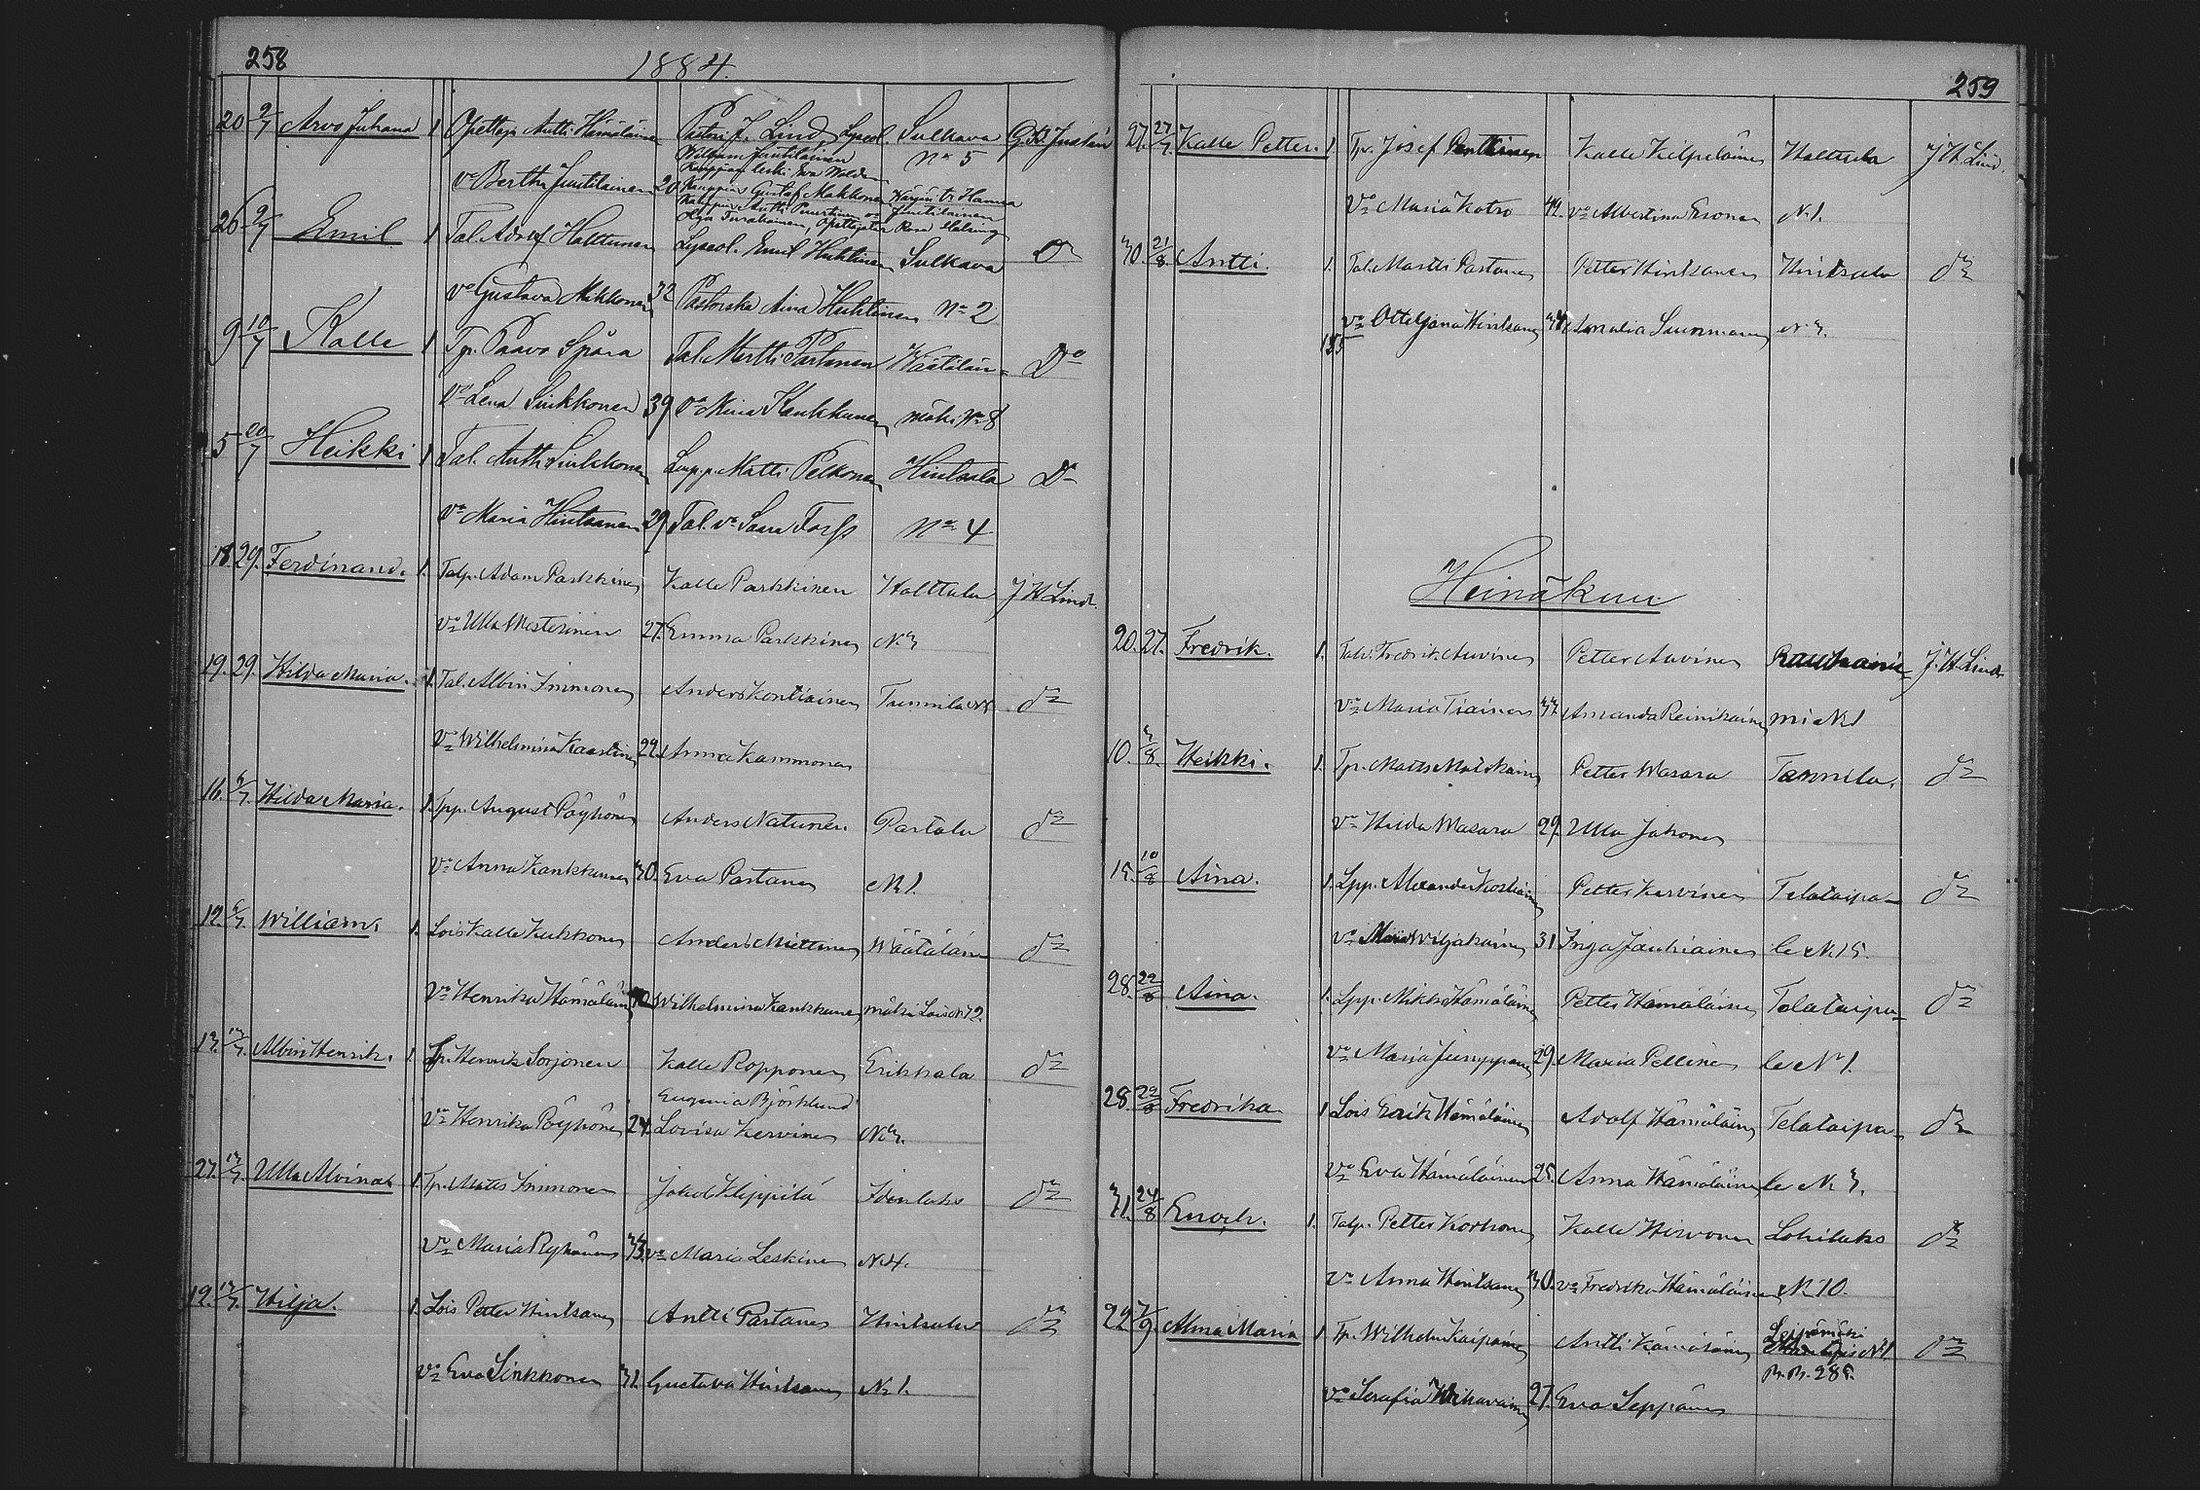 258
1884.
20 2/7 Arvo Juhana 1 Opettaja Antti Hämäläinen Pastori J. Lind, Lyseol. Sulkava G.A. Justén
Wilhjam Juutilainen No 5
Kauppias leski Eva Walden
vo Bertha Juutilainen 20 Kauppias Gustaf Makkonen Hanna
Antti Juutilainen
Olga Opettajatar Rosa
26 2/7 Emil 1 Tal. Adolf Halttunen Lyseol. Emil Huhtinen Sulkava Do
vo Gustava Makkonen 32 Pastorska Aina Huhtinen No 2
9 10/7 Kalle 1 Tp. Paavo Spåra Tal. Martti Partanen Wäätälän- Do
vo Lena Sinkkonen 39 vo Mina Kankkunen mäki No 8
5 20/7 Heikki 1 Tal. Antti Sinkkonen Lmp.p. Matti Pelkonen Hintsala Do
vo Maria Hintsanen 29 Tal. vo Saara Torss No 4
18. 29. Ferdinand. 1. Talp. Adam Parkkinen Kalle Parkkinen Halttula J H Lind.
vo Ulla Mosterinen 27. Emma Parkkinen N. 3
19. 29. Hilda Maria. 1. Tal. Albin Immonen Anders Kontiainen Tunnila do
vo Wilhelmina Kaartinen 22. Anna Kammonen
16. 6/7. Hilda Maria. 1. Tpp. August Pöyhönen Anders Natunen. Partala do
vo Anna Kankkunen 30. Eva Partanen N. 1.
12. 6/7. William. 1. Lois Kalle Kukkonen Anders Miettinen Wäätälän do
vo Henrika Hämäläinen Wilhelmina Kankkunen mäki Lois N. 2.
13. 13/7. Albin Henrik. 1. Tp. Henrik Sorjonen Kalle Ropponen Erikkala do
Eugenia Björklund
vo Henrika Pöyhönen 24. Lovisa Kervinen N. 3.
27. 13/7. Ulla Alvina 1. Tp. Matts Immonen Jakob Ylippilä Idenlaks do
vo Maria Ryhänen 33 vo Maria Leskinen N. 4.
12. 13/7. Hilja. 1. Lois Petter Hintsanen Antti Partanen Hintsala do
vo Eva Sinkkonen 31. Gustava Hintsanen N. 1.
259
27. 27/7. Kalle Petter. 1. Tp. Josef Penttinen Kalle Kilpeläinen Halttula J H Lind.
vo Maria Kotro 44. vo Albertina Eronen N. 1.
30. 21/8. Antti. 1. Tal. Martti Partanen Petter Hintsanen Hintsala do
vo Otteljana Hintsanen Amalia Suurmanen N. 3.
155
Heinäkuu
20. 27. Fredrik. 1. Talv. Fredrik Auvinen Petter Auvinen J. H. Lind.
vo Maria Tiainen 33. Amanda Reinikainen mi N. 1
10. 3/8. Heikki. 1. Tp. Matts Matikainen Petter Wasara Tammila. do
vo Hilda Wasara 29. Ulla Jakonen
15. 10/8 Aina. 1. Lpp. Alexander Kostiainen Petter Kervinen Telataipa- do
vo Maria Wiljakainen 31 Inga Jauhiainen le N. 15.
28. 22/8 Aina. 1. Lpp. Mikko Hämäläinen Petter Hämäläinen Telataipa- do
vo Maria Jumppanen 29. Maria Pellinen le N. 1.
28. 22/8 Fredrika 1 Lois Erik Hämäläinen Adolf Hämäläinen Telataipa- do
vo Eva Hämäläinen 25. Anna Hämäläinen le N. 3.
31. 24/8 Enoch. 1. Talp. Petter Korhonen Kalle Hirvonen Lohilaks do
vo Anna Hintsanen 30. vo Fredrika Hämäläinen N. 10.
22 7/9. Alma Maria 1 Tp. Wilhelm Kaipainen Antti Hämäläinen Leipämäki do
N. 1.
285.
vo Serafia 27. Eva Seppänen